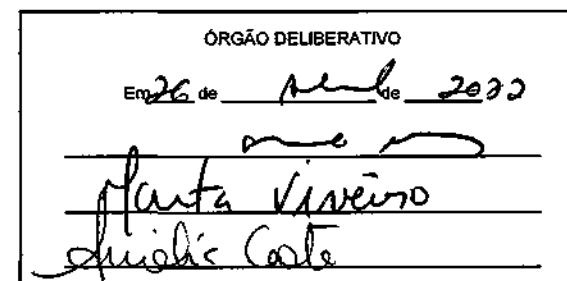 ÓRGÃO DELIBERATIVO
Em 26 de Abril de 2022
Marta Viveiro
Amélia Costa